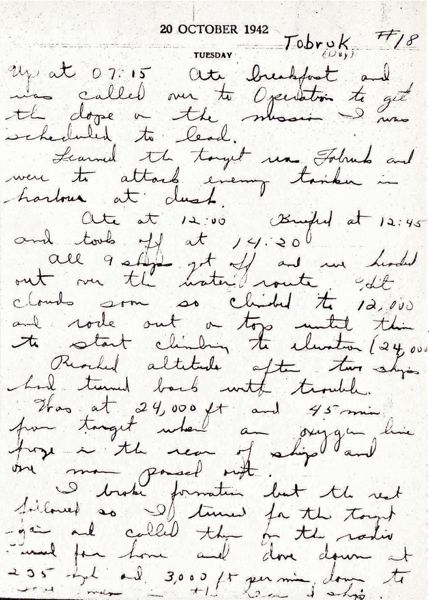 20 OCTOBER 1942
Tobruk #18
TUESDAY (Day)
Up at 07:15 Ate breakfast and
was called over to Operation to get
the dope on the mission I was
scheduled to lead.
Learned the target was Tobruk and
were to attack enemy tanker in
harbour at dusk.
Ate at 12:00 Briefed at 12:45
and took off at 14:20
All 9 ships got off and we headed
out over the water route Hit
clouds soon so climbed to 12,000
and rode out on top until time
to start climbing to elevation (24,000
Reached altitude after two ships
had turned back with trouble.
Was at 24,000 ft and 45 min
from target when an oxygen line
froze in the rear of ships and
one man passed out.
I broke formation but the rest
followed so I turned for the target
again and called them on the radio
turned for home and dove down at
235 mph and 3,000 ft per min down to
man in the rear of ship.